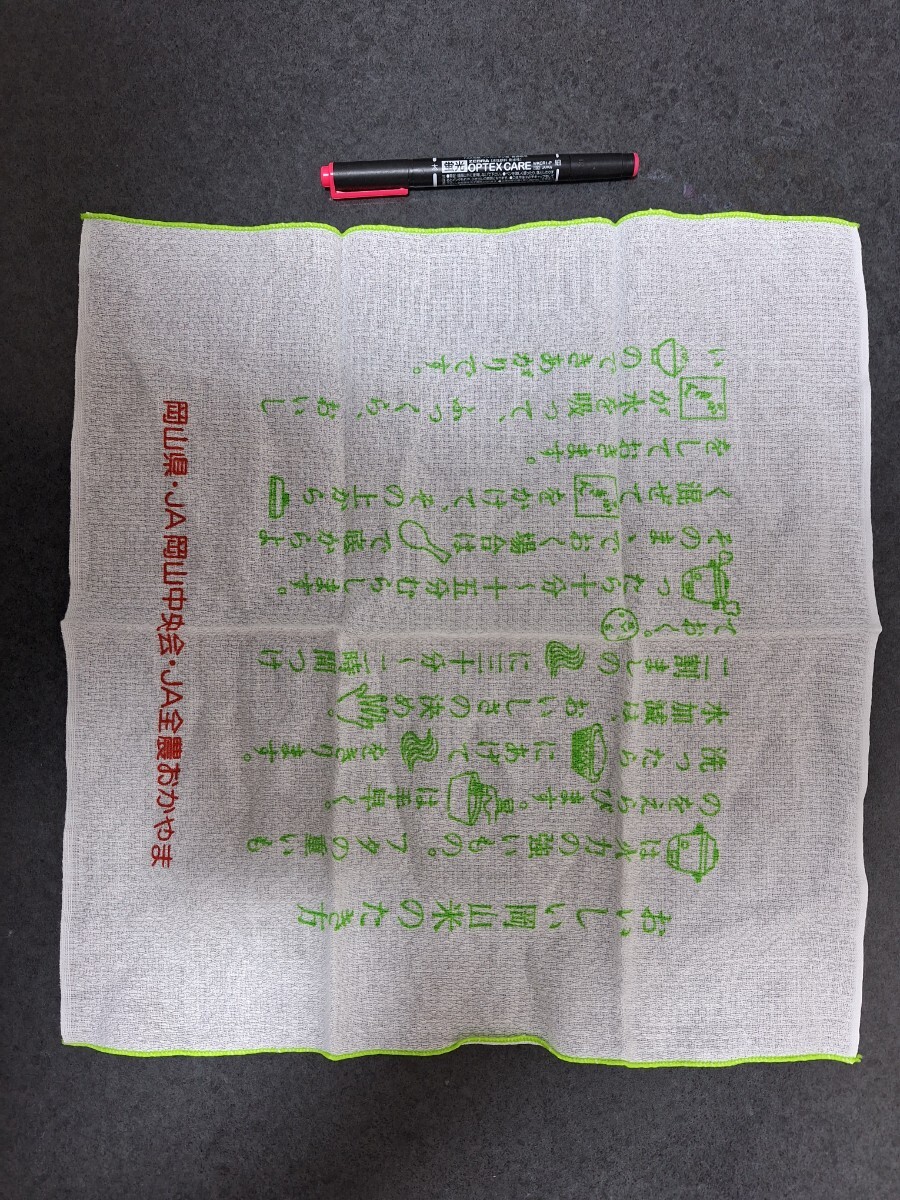 蛍光 ZEBRA
OPTEX CARE
おいしい岡山米のたき方
は火力の強いもの。フタの重いも
のをえらびます。は手早く。
洗ったらにあげてをきります。
水加減は、おいしさの決め。
二割ましのに三十分〜一時間つけ
ておく。
ったら十分〜十五分むらします。
そのまゝておく場合はで底からよ
く混ぜてをかけて、その上から
をしておきます。
が水を吸って、ふっくら、おいし
いのできあがりです。
岡山県・JA岡山中央会・JA全農おかやま